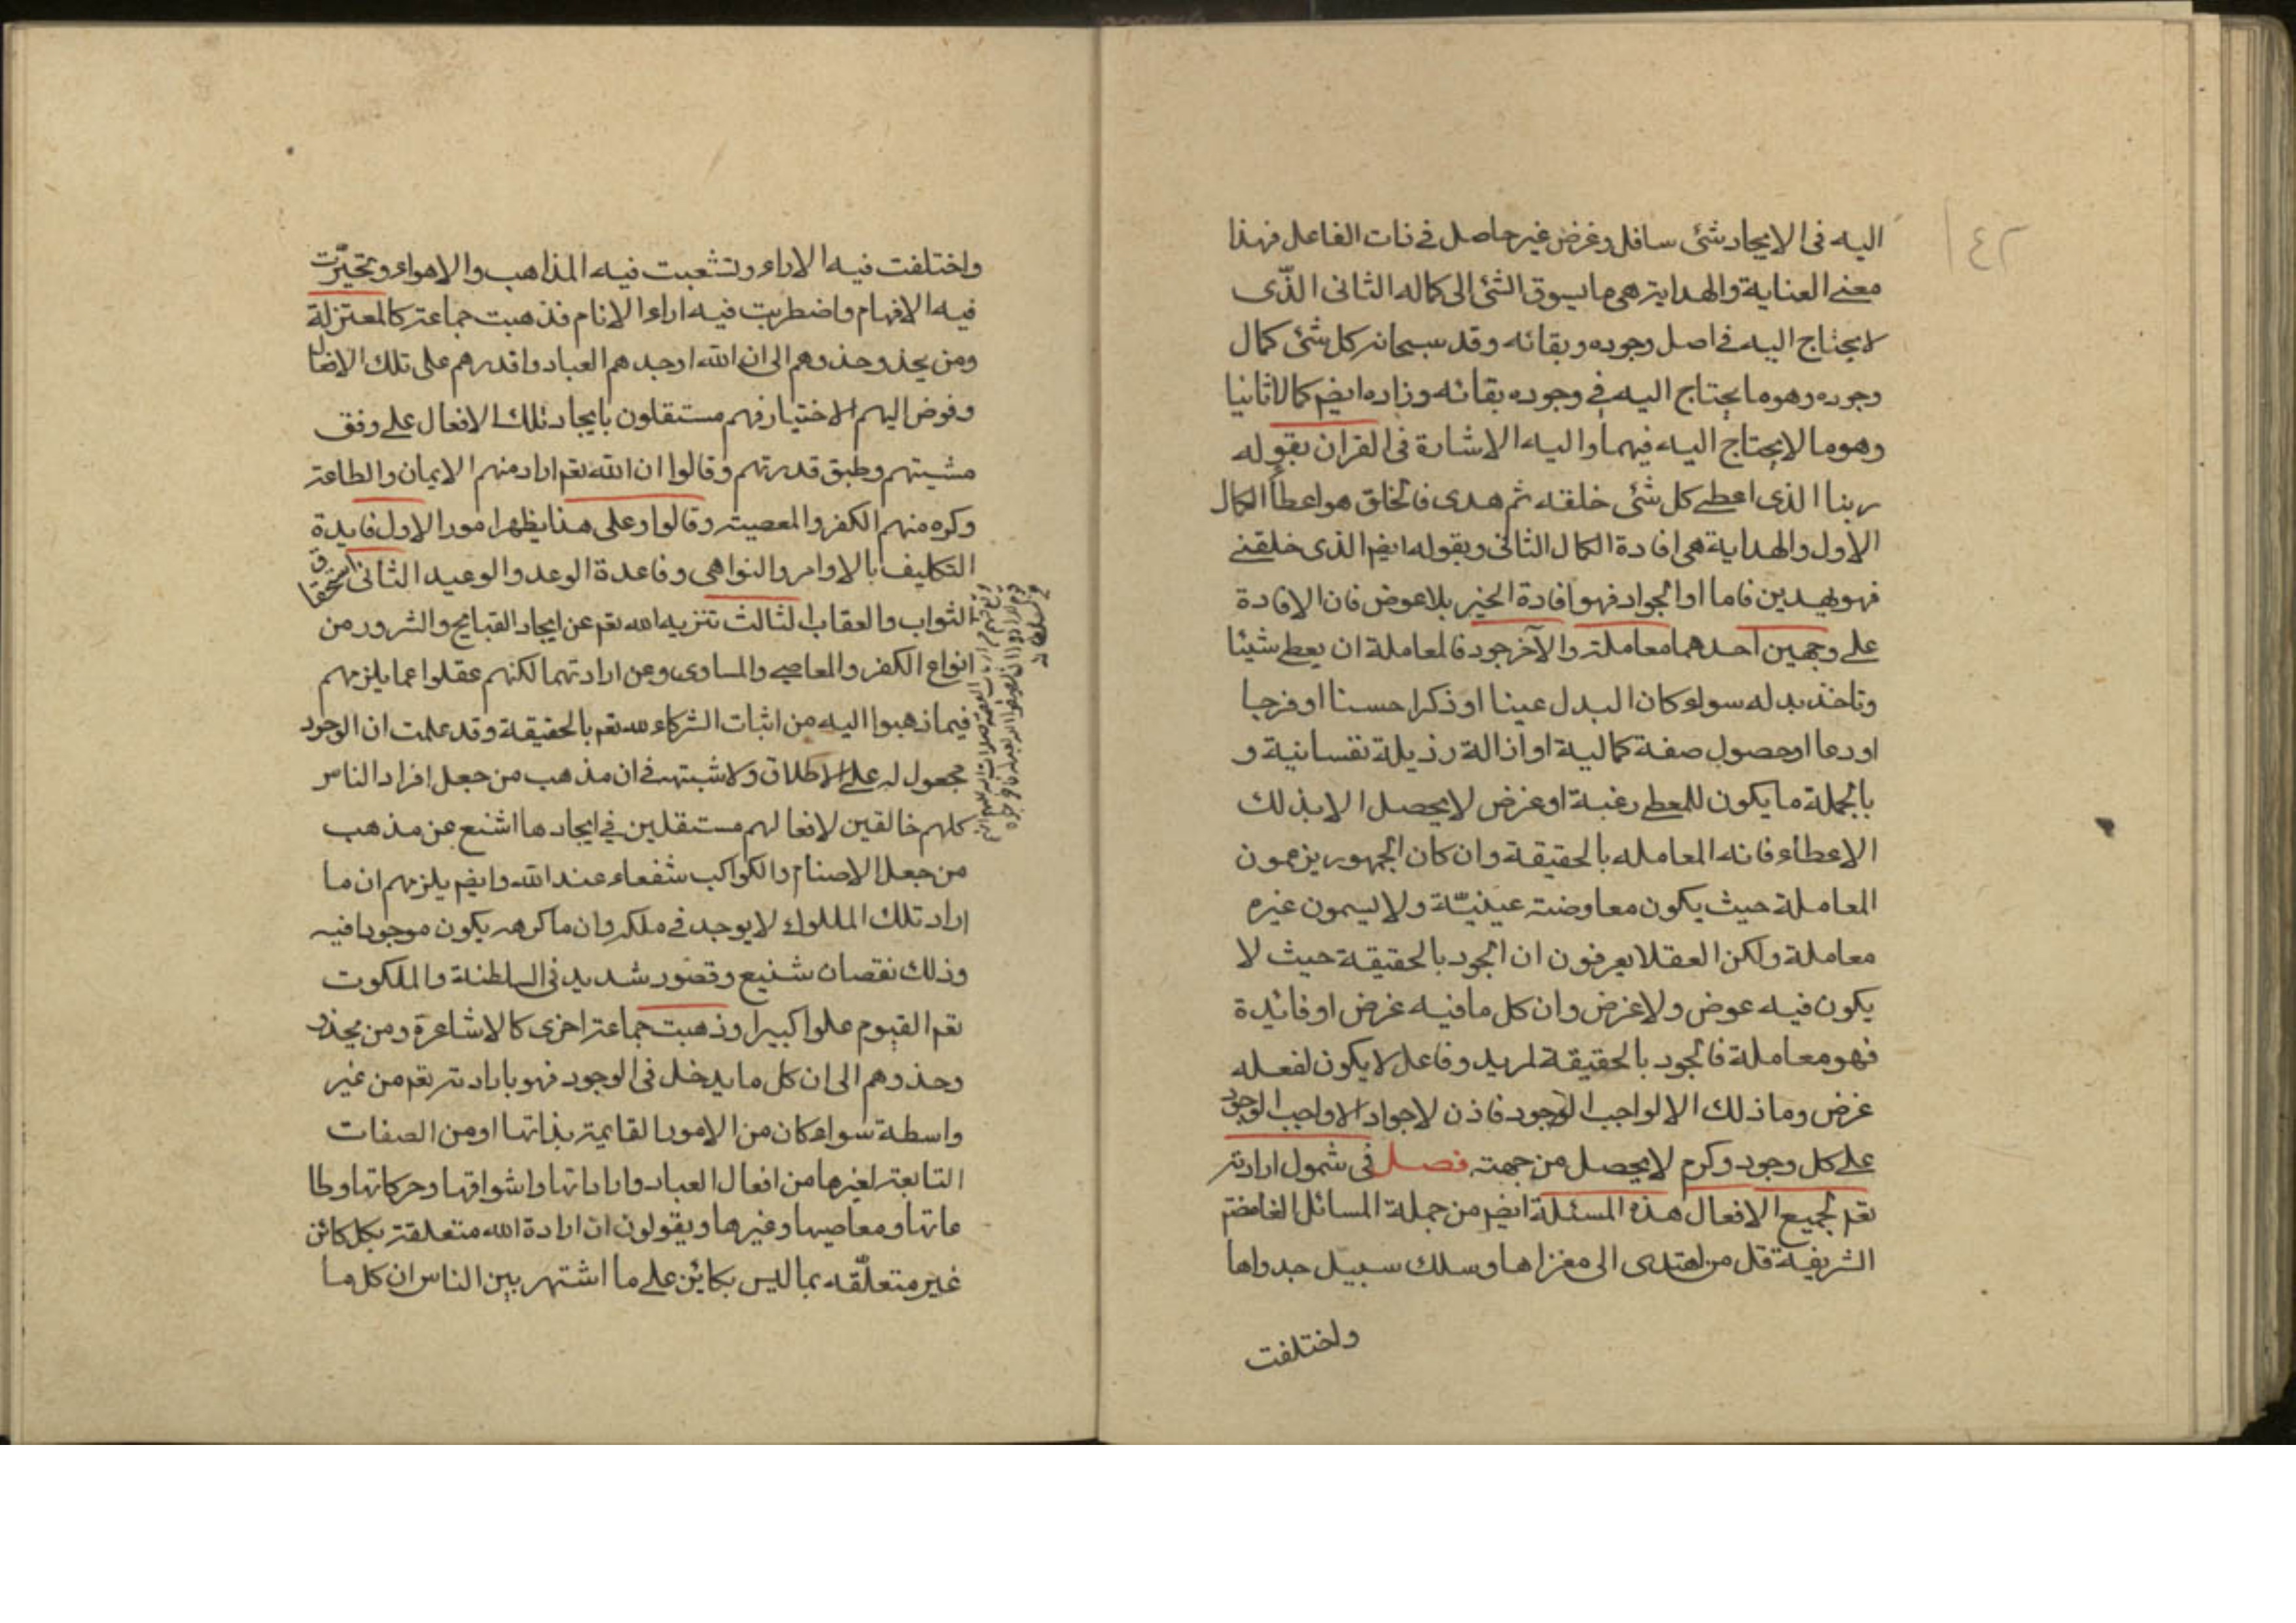 ٤٢
اليه فى الايجاد شئ سافل وغرض غير حاصل فى ذات الفاعل فهذا
معنى العناية والهداية هى ما يسوق الشئ الى كماله الثانى الذّى
لا يحتاج اليه فى اصل وجوده وبقائه وقد سبحانه كل شئ كمال
وجوده وهو ما يحتاج اليه فى وجوده بقائه وزاده ايضم كمالا ثانيا
وهو ما لا يحتاج اليه فيهما واليه الاشارة فى القران بقوله
ربنا الذى اعطى كل شئ خلقه ثم هدى فالخلق هو اعطأ الكمال
الاول والهداية هى افادة الكمال الثانى وبقوله ايضم الذى خلقنى
فهو يهدين فاما الجواد فهو افادة الخير بلا عوض فان الافادة
على وجهين احدهما معاملة والآخر جود فالمعاملة ان يعطى شيئا
وتاخذ بدله سواء كان البدل عينا او ذكرا حسنا او فرحا
او دعا او حصول صفة كمالية او ازالة رذيلة نفسانية و
بالجملة ما يكون للمعطى رغبة او غرض لا يحصل الا بذلك
الاعطاء فانه المعامله بالحقيقة وان كان الجمهور يزعمون
المعاملة حيث يكون معاوضته عينيّة ولا يسمون غيره
معاملة ولكن العقلا يعرفون ان الجود بالحقيقة حيث لا
يكون فيه عوض ولا غرض وان كل ما فيه غرض او فائدة
فهو معاملة فالجود بالحقيقة لمريد وفاعل لا يكون لفعله
غرض وما ذلك الا لواجب الوجود فاذن لا جواد الا واجب الوجود
على كل وجود وكرم لا يحصل من جهته فصل فى شمول ارادته
تعم لجميع الافعال هذه المسئلة ايضم من جملة المسائل الغامضة
الشريفة قل من اهتدى الى مغزاها وسلك سبيل جدواها
واختلفت
واختلفت فيه الاراء وتشعبت فيه المذاهب والاهواء وتحيّرت
فيه الافهام واضطربت فيه اراء الانام فذهبت جماعة كالمعتزلة
ومن يحذو حذوهم الى ان الله اوجد هم العباد واقدرهم على تلك الافعال
وفوض اليهم الاختيار فهم مستقلون بايجاد تلك الافعال على وفق
مشيتهم وطبق قدرتهم وقالوا ان الله تعم اراد منهم الايمان والطاعة
وكره منهم الكفر والمعصية وقالوا وعلى هذا يظهر امور الاول فايدة
التكليف بالاوامر والنواهى وفاعدة الوعد والوعيد الثانى استحقاق
الثواب والعقاب الثالث تنزيه الله تعم عن ايجاد القبايح والشرور من
انواع الكفر والمعاصى والمساوى وعن ارادتهما لكنهم عقلوا عما يلزمهم
فيما ذهبوا اليه من اثبات الشركاء لله تعم بالحقيقة وقد علمت ان الوجود
مجعول له على الاطلاق ولا شبهته فى ان مذهب من جعل افراد الناس
كلهم خالقين لافعالهم مستقلين فى ايجادها اشنع عن مذهب
من جعل الاصنام والكواكب شفعاء عند الله وايضم يلزمهم ان ما
اراد تلك المللوك لا يوجد فى ملكه وان ما كرهه يكون موجودا فيه
وذلك نقصان شنيع وقصور شديد فى السلطنة والملكوت
تعم القيوم علوا كبيرا وذهبت جماعة اخرى كالاشاعرة ومن يحذو
وحذوهم الى ان كل ما يدخل فى الوجود فهو بارادته تعم من غير
واسطة سواء كان من الامور القايمة بذاتها او من الصفات
التابعة لغيرها من افعال العباد واراداتها واشواقها وحركاتها وطا
عاتها ومعاصيها وغيرها ويقولون ان ارادة الله متعلقة بكل كائن
غير متعلّقه بما ليس بكائن على ما اشتهر بين الناس ان كل ما